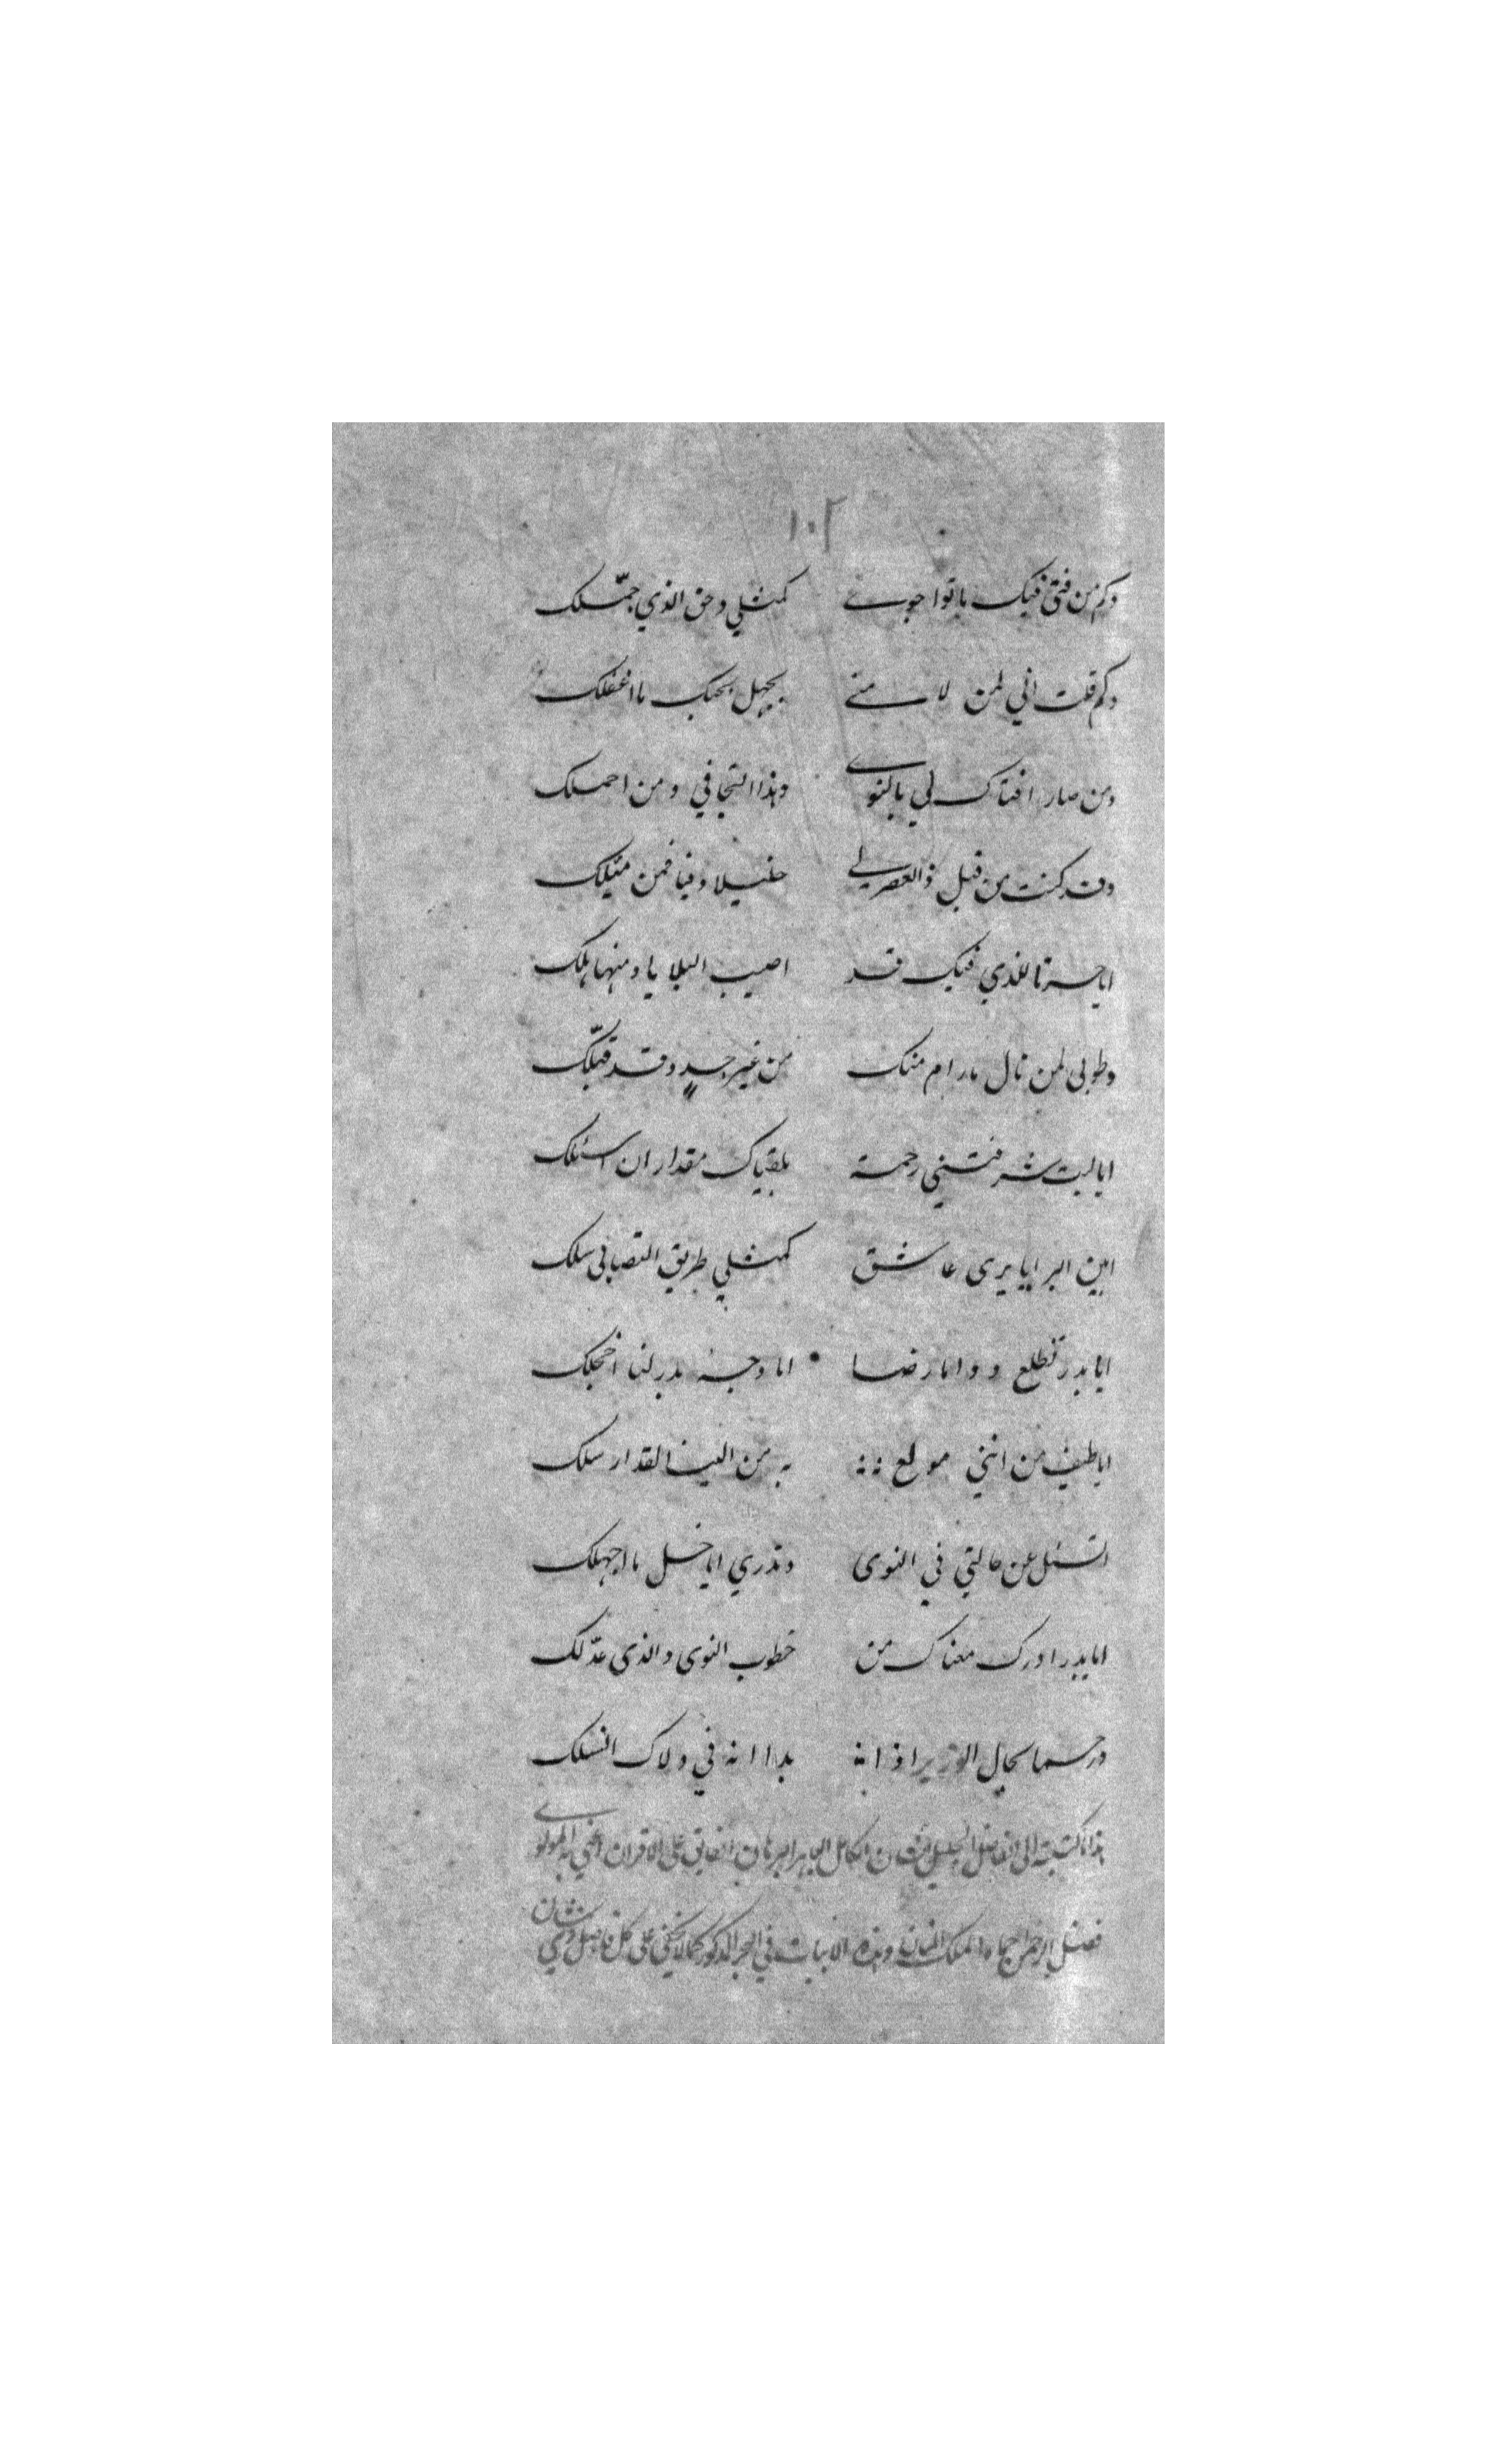 ١٠٢
وكم من فتى فيك باتوا جوى كمثلي وحق الذي جمّلك
وكم قلت اني لمن لامني بجهل بحبك ما اغفلك
ومن صار افتاك لي بالنوى وهذا التجافي ومن احملك
وقد كنت من قبل ذا العصر لي خليلا وفيا فمن ميّلك
ايا حسرتا للذي فيك قد اصيب البلايا ومنها هلك
وطوبى لمن نال ما رام منك من غير جدٍ وقد قبّلك
ايا ليت شرفتني رحمة بلقياك مقدار ان اسئلك
ابين البرايا يرى عاشق كمثلي طريق التصابى سلك
ايا بدر تطلع دوما رضا اما وجنة بدر لنا اخجلك
ايا طيف من انني مولع به من الينا لقد ارسلك
اتسئل عن حالتي في النوى وتدري ايا خل ما اجهلك
ايا بدر ادرك معناك من خطوب النوى والذى عدّلك
ورحما بحال الوزير اذ انه بدا انه في ولاك انسلك
هذا ما كتبته الى الفاضل الجليل الشان الكامل الباهر البرهان الفايق على الاقران اعني به المولوى
فضل الرحمن حماه الملك المنان وهذه الابيات في البحر المذكور كما لا يخفى على كل فاضل ذي شان